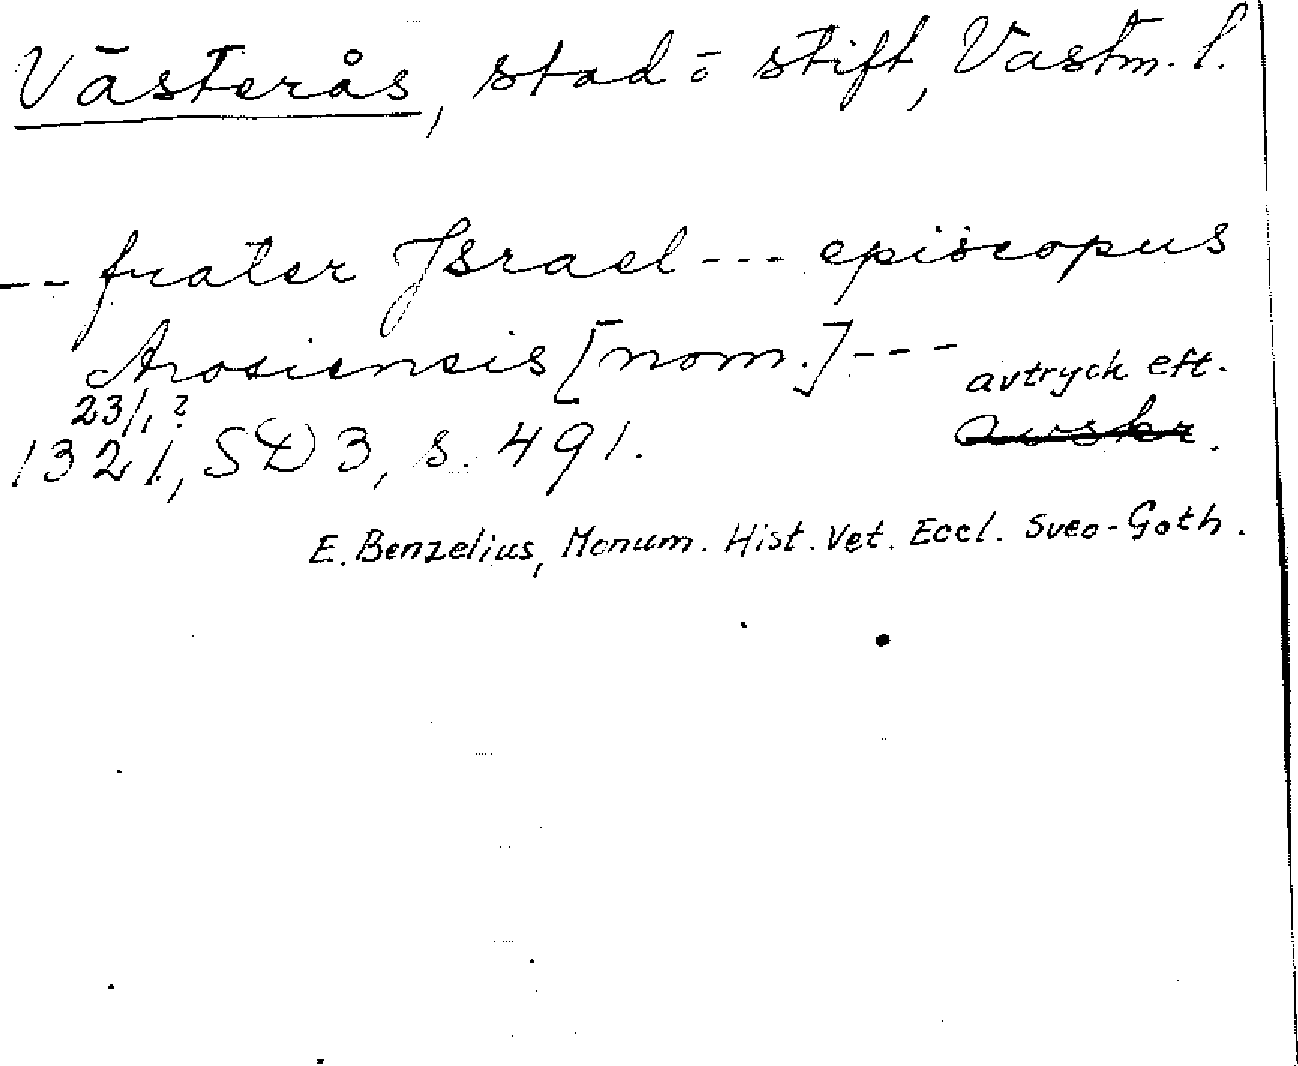 Västerås, stad o stift, Västm. l.
--- frater Israel --- episcopus
Arosiensis [nom.] ---
avtryck eft.
23/1 ?
1321, SD 3, s. 491. avskr.
E. Benzelius, Monum. Hist. Vet. Eccl. Sveo-Goth.